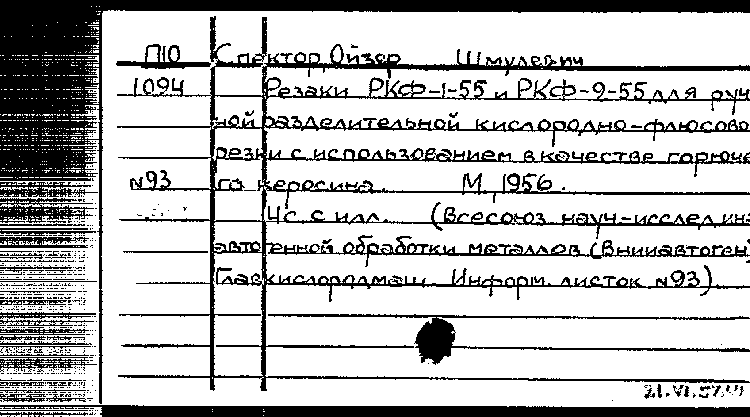 П10 Спектор, Ойзер Шмулевич
1094 Резаки РКФ-1-55 и РКФ-2-55 для руч
ной разделительной кислородно-флюсово
резки с использованием в качестве горюче
N93 го керосина. М, 1956.
4с. с илл. (Всесоюз. науч-исслед. инс
автогенной обработки металлов (Внииавтоген)
Главкислородмаш. Информ. листок N93).
21.VI.57